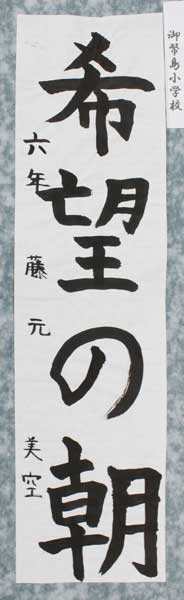 御幣島小学校
希望の朝
六年 藤元 美空